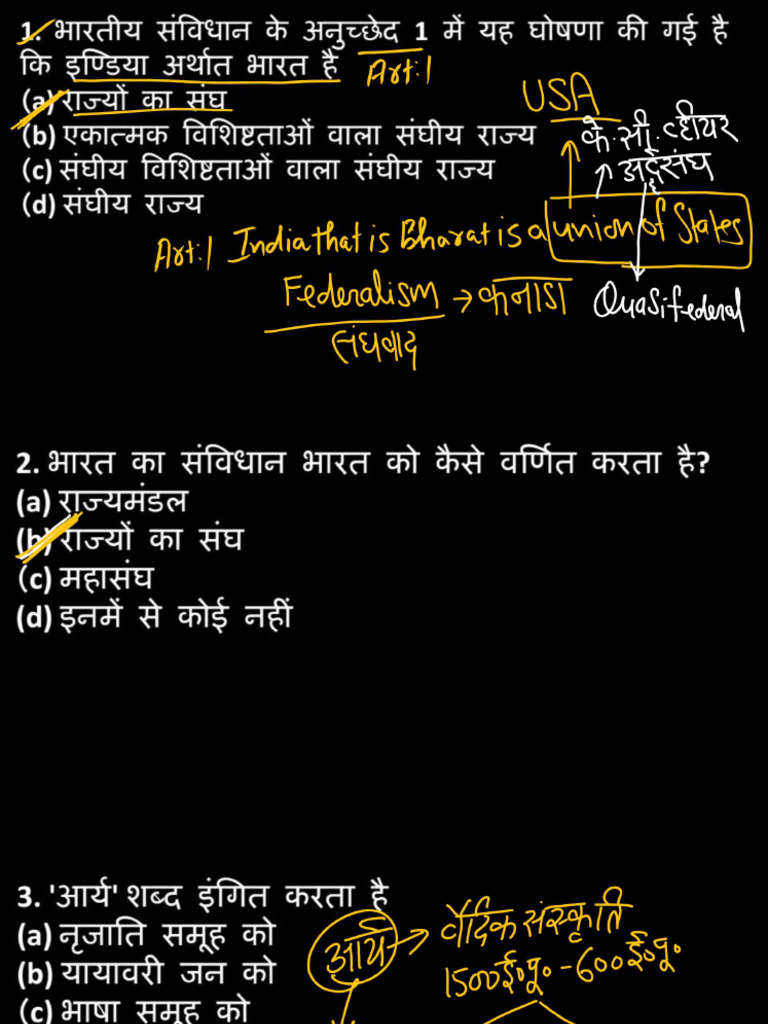 1. भारतीय संविधान के अनुच्छेद 1 में यह घोषणा की गई है
कि इण्डिया अर्थात भारत है Art:1
(a) राज्यों का संघ
USA
(b) एकात्मक विशिष्टताओं वाला संघीय राज्य
के.सी.व्हीयर
(c) संघीय विशिष्टताओं वाला संघीय राज्य
अर्द्धसंघ
(d) संघीय राज्य
Art:1 India that is Bharat is a union of States
Federalism → कनाडा
Quasifederal
संघवाद
2. भारत का संविधान भारत को कैसे वर्णित करता है?
(a) राज्यमंडल
(b) राज्यों का संघ
(c) महासंघ
(d) इनमें से कोई नहीं
3. 'आर्य' शब्द इंगित करता है
(a) नृजाति समूह को
आर्य → वैदिक संस्कृति
(b) यायावरी जन को
1500ई०पू० - 600ई०पू०
(c) भाषा समूह को